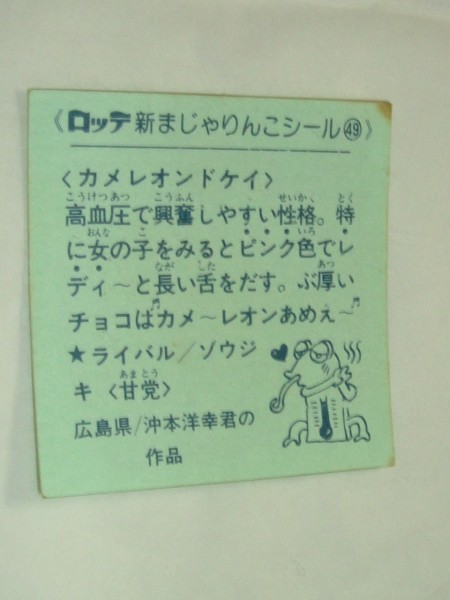 《ロッテ新まじゃりんこシール㊾》
〈カメレオンドケイ〉
高血圧で興奮しやすい性格。特
に女の子をみるとピンク色でレ
ディ～と長い舌をだす。ぶ厚い
チョコはカメ～レオンあめぇ～
★ライバル/ゾウジ
キ〈甘党〉
広島県/沖本洋幸君の
作品